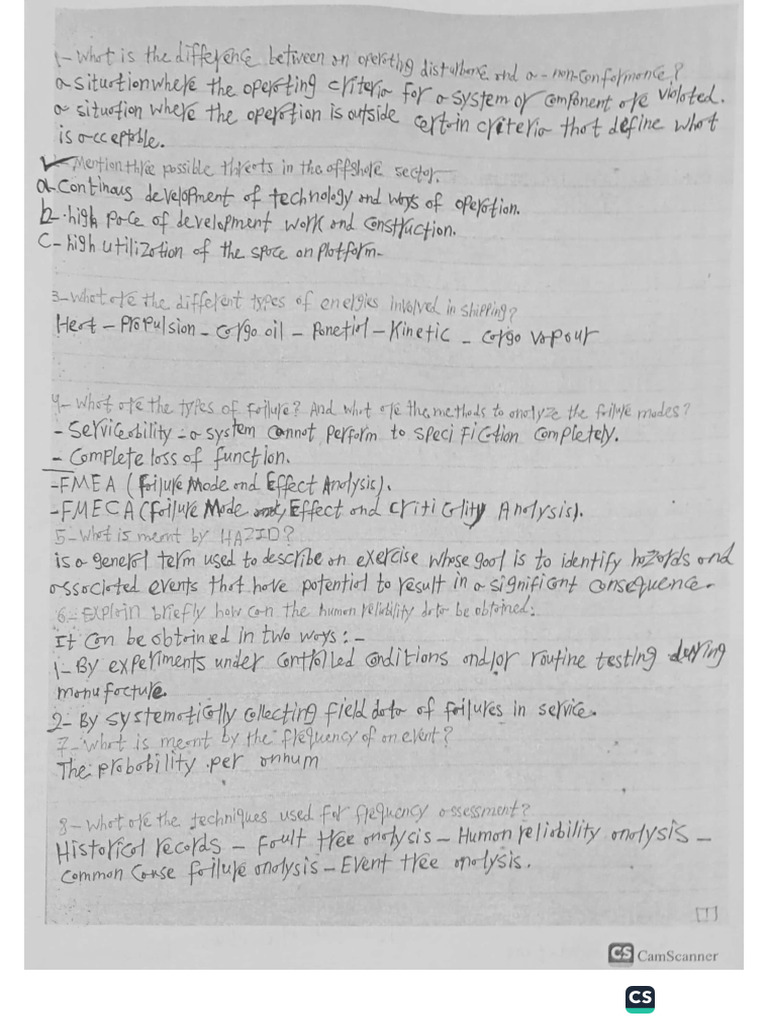 1- What is the difference between an operating disturbance and a non-conformance?
a situation where the operating criteria for a system or component are violated.
a situation where the operation is outside certain criteria that define what
is acceptable.
Mention three possible threats in the offshore sector.
a- Continous development of technology and ways of operation.
b- high pace of development work and construction.
C- high utilization of the space on platform.
3- What are the different types of energies involved in shipping?
Heat - Propulsion - cargo oil - Ponetial - Kinetic - cargo vapour
4- What are the types of failure? And what are the methods to analyze the failure modes?
- Serviceability - a system cannot perform to speci fication completely.
- Complete loss of function.
-FMEA (Failure Mode and Effect Analysis).
-FMECA (Failure Mode, Effect and criticality Analysis).
5- What is meant by HAZID?
is a general term used to describe an exercise whose goal is to identify hazards and
associated events that have potential to result in a significant consequence.
6- Explain briefly how can the human reliability data be obtained:
It can be obtained in two ways:-
1- By experiments under controlled conditions and/or routine testing during
manufacture.
2- By systematically collecting field data of failures in service.
7- What is meant by the frequency of an event?
The probability per annum
8- What are the techniques used for frequency assessment?
Historical records - Fault tree analysis - Human reliability analysis -
Common Cause failure analysis - Event tree analysis.
[1]
CS CamScanner
CS